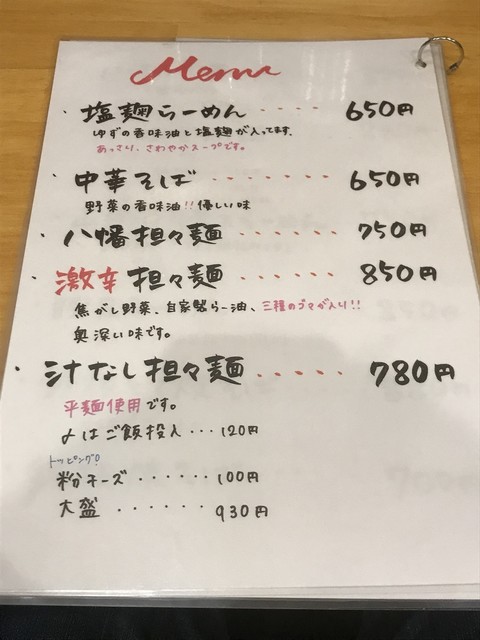 Menu
・塩麹らーめん ・・・・ 650円
ゆずの香味油と塩麹が入ってます。
あっさり、さわやかスープです。
・中華そば ・・・・・・・ 650円
野菜の香味油!!優しい味
・八幡担々麺 ・・・・・・ 750円
・激辛担々麺 ・・・・・・ 850円
焦がし野菜、自家製らー油、三種のゴマが入り!!
奥深い味です。
・汁なし担々麺 ・・・・・ 780円
平麺使用です。
〆はご飯投入・・・120円
トッピング!
粉チーズ・・・・・・100円
大盛 ・・・・・・・930円